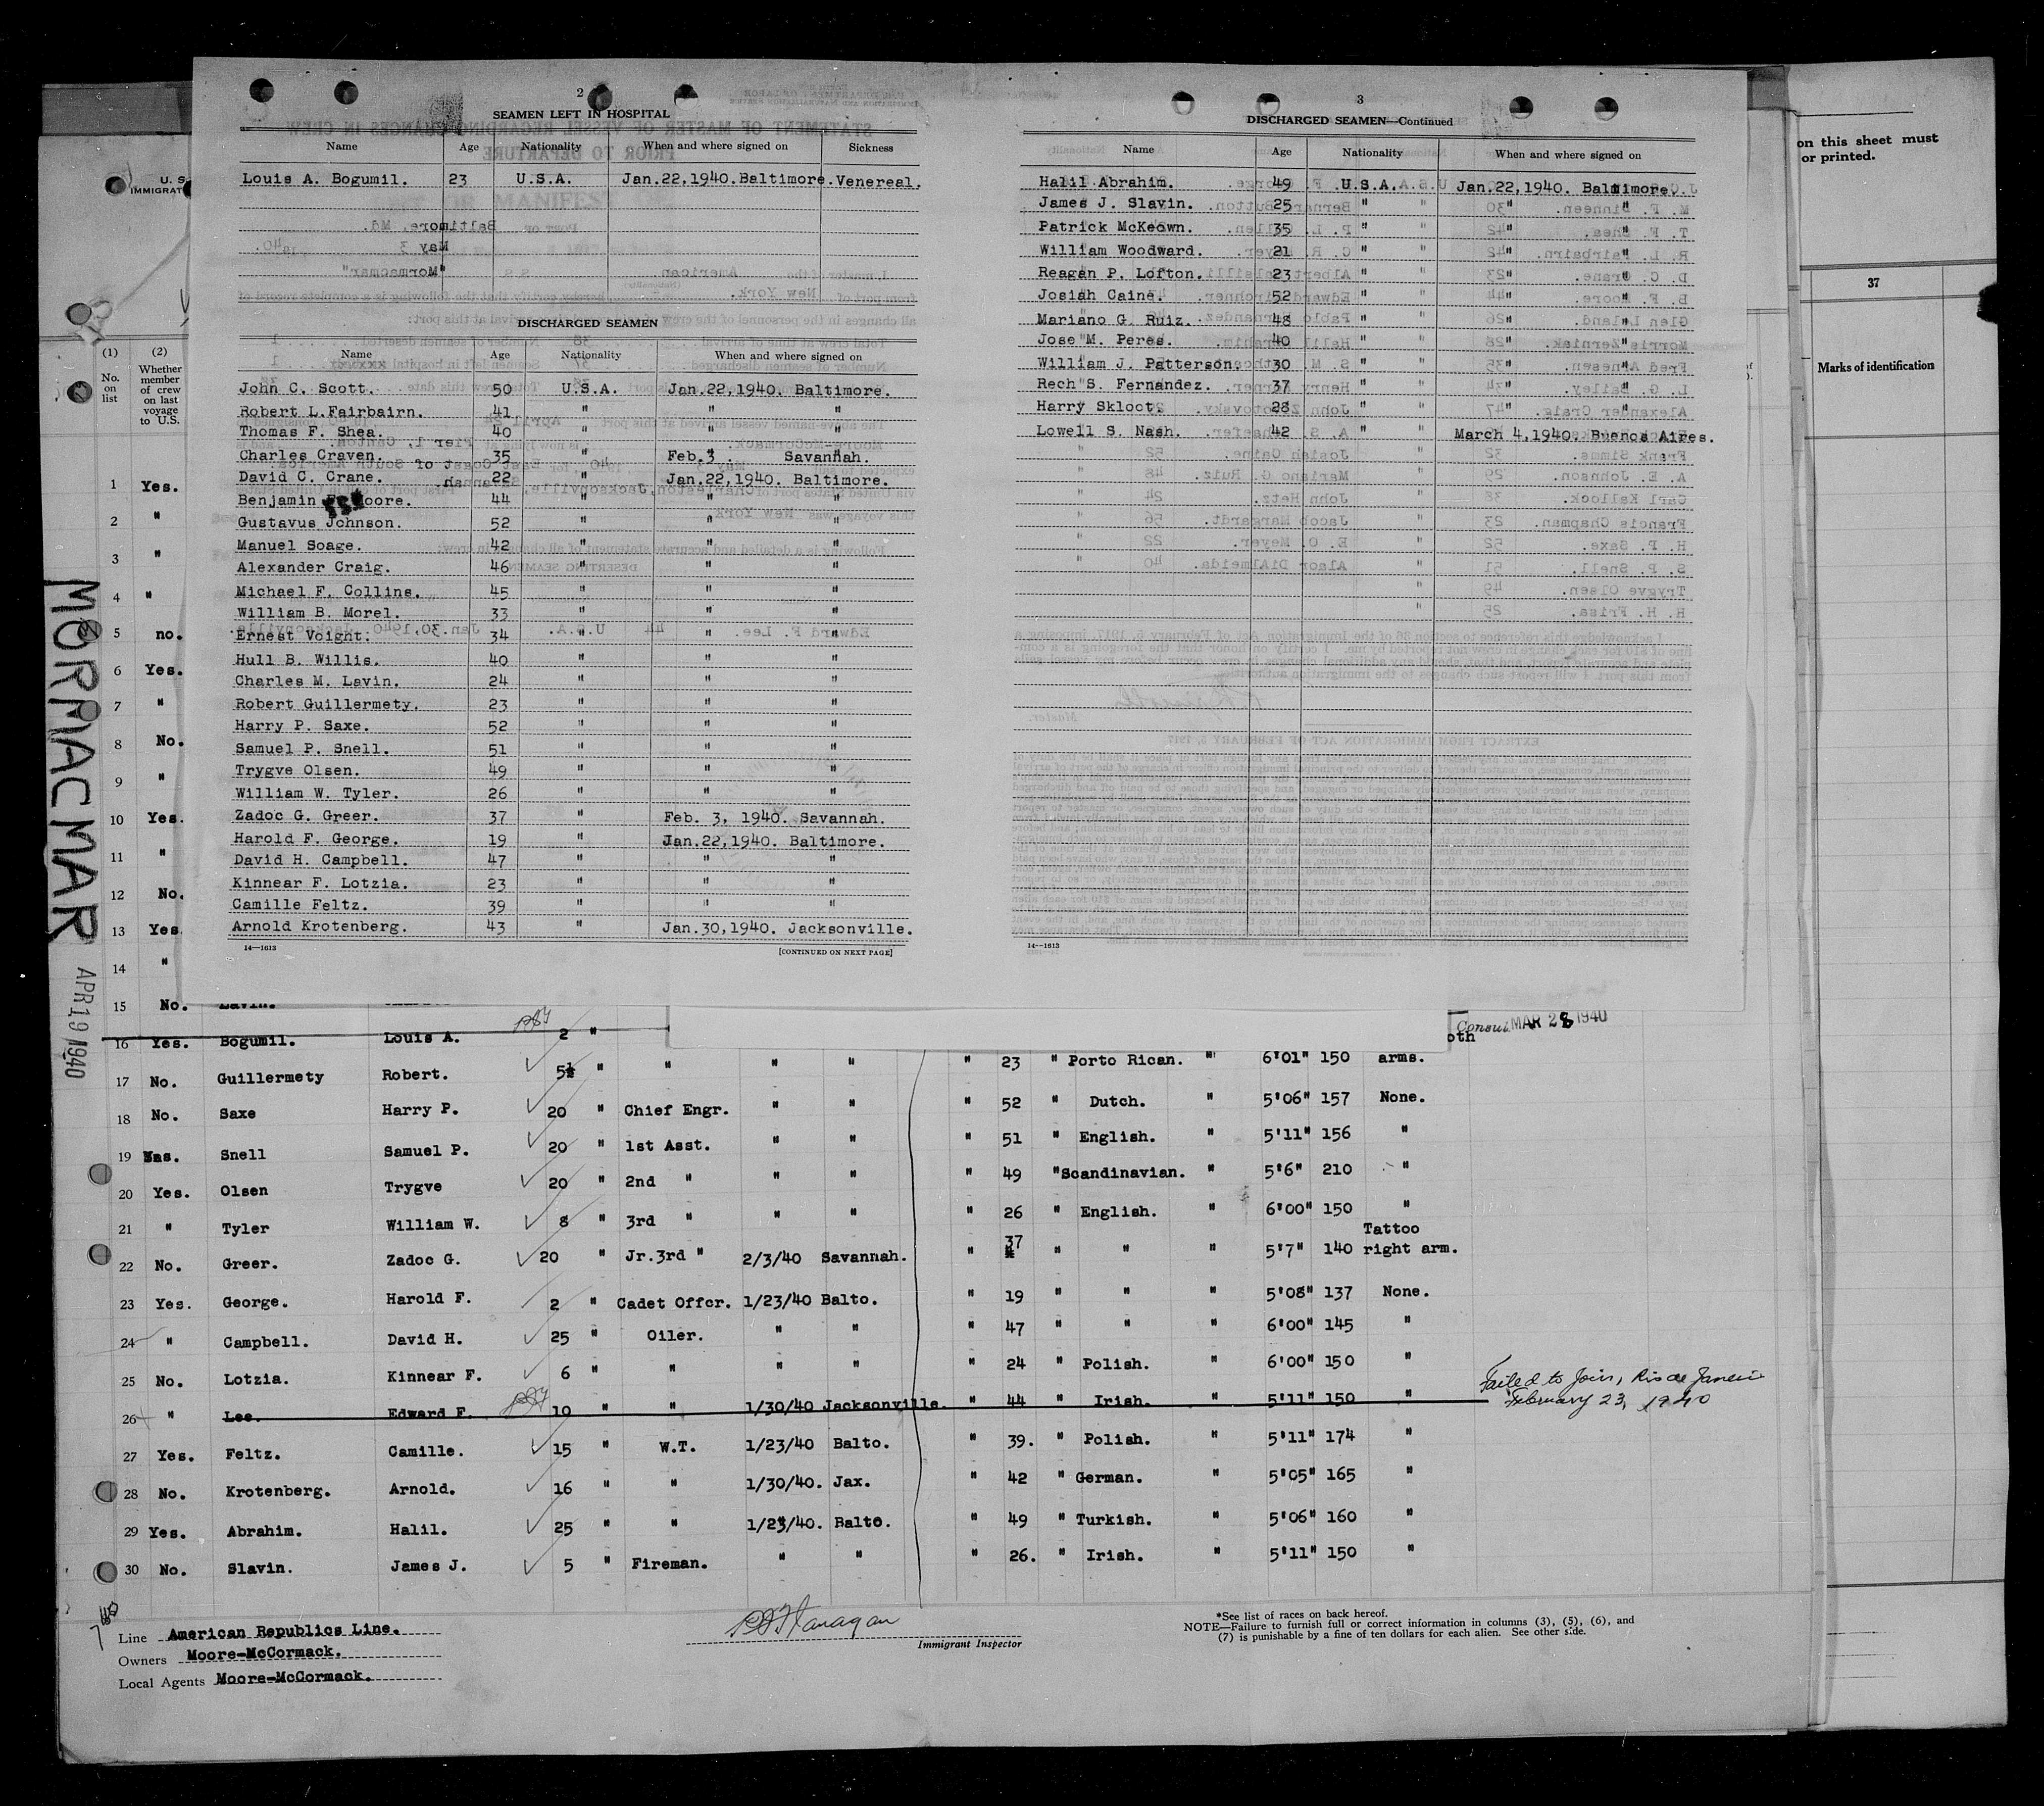 2
SEAMEN LEFT IN HOSPITAL
Name Age Nationality When and where signed on Sickness
Louis A. Bogumil. 23 U.S.A. Jan.22,1940.Baltimore. Venereal.
DISCHARGED SEAMEN
Name Age Nationality When and where signed on
John C. Scott. 50 U.S.A. Jan.22,1940. Baltimore.
Robert L.Fairbairn. 41 " " "
Thomas F. Shea. 40 " " "
Charles Craven. 35 " Feb.3 " Savannah.
David C. Crane. 22 " Jan.22,1940. Baltimore.
Benjamin F. Moore. 44 " " "
Gustavus Johnson. 52 " " "
Manuel Soage. 42 " " "
Alexander Craig. 46 " " "
Michael F. Collins. 45 " " "
William B. Morel. 33 " " "
Ernest Voight. 34 " " "
Hull B. Willis. 40 " " "
Charles M. Lavin. 24 " " "
Robert Guillermety. 23 " " "
Harry P. Saxe. 52 " " "
Samuel P. Snell. 51 " " "
Trygve Olsen. 49 " " "
William W. Tyler. 26 " " "
Zadoc G. Greer. 37 " Feb. 3, 1940. Savannah.
Harold F. George. 19 " Jan.22,1940. Baltimore.
David H. Campbell. 47 " " "
Kinnear F. Lotzia. 23 " " "
Camille Feltz. 39 " " "
Arnold Krotenberg. 43 " Jan.30,1940. Jacksonville.
14—1613 [CONTINUED ON NEXT PAGE]
3
DISCHARGED SEAMEN—Continued
Name Age Nationality When and where signed on
Halil Abrahim. 49 U.S.A. Jan.22,1940. Baltimore.
James J. Slavin. 25 " " "
Patrick McKeown. 35 " " "
William Woodward. 21 " " "
Reagan P. Lofton. 23 " " "
Josiah Caine. 52 " " "
Mariano G. Ruiz. 48 " " "
Jose M. Peres. 40 " " "
William J. Patterson. 30 " " "
Rech S. Fernandez. 37 " " "
Harry Skloct. 28 " " "
Lowell S. Nash. 42 " March 4,1940. Buenos Aires.
14—1613
on this sheet must
or printed.
37
Marks of identification
U. S.
IMMIGRAT
(1) (2)
No. on list
Whether member of crew on last voyage to U.S.
1 Yes.
2 "
3 "
4 "
5 no.
6 Yes.
7 "
8 No.
9 "
10 Yes.
11 "
12 No.
13 Yes
14 "
15 No. Lavin.
MORMACMAR
APR 19 1940
Consul MAR 28 1940
16 Yes. Bogumil. Louis A. 2 "
17 No. Guillermety Robert. 5 " " " " " 23 " Porto Rican. " 6'01" 150 arms.
18 No. Saxe Harry P. 20 " Chief Engr. " " " 52 " Dutch. " 5'06" 157 None.
19 Snell Samuel P. 20 " 1st Asst. " " " 51 " English. " 5'11" 156 "
20 Yes. Olsen Trygve 20 " 2nd " " " " 49 " Scandinavian. " 5'6" 210 "
21 " Tyler William W. 8 " 3rd " " " " 26 " English. " 6'00" 150 "
22 No. Greer. Zadoc G. 20 " Jr.3rd " 2/3/40 Savannah. " 37 " " " 5'7" 140 Tattoo right arm.
23 Yes. George. Harold F. 2 " Cadet Offcr. 1/23/40 Balto. " 19 " " " 5'08" 137 None.
24 " Campbell. David H. 25 " Oiler. " " " 47 " " " 6'00" 145 "
25 No. Lotzia. Kinnear F. 6 " " " " " 24 " Polish. " 6'00" 150 "
26 " Lee. Edward F. 10 " " 1/30/40 Jacksonville. " 44 " Irish. 5'11" 150 " Failed to Join, Rio de Janeiro February 23, 1940
27 Yes. Feltz. Camille. 15 " W.T. 1/23/40 Balto. " 39. " Polish. " 5'11" 174 "
28 No. Krotenberg. Arnold. 16 " " 1/30/40. Jax. " 42 " German. " 5'05" 165 "
29 Yes. Abrahim. Halil. 25 " " 1/23/40. Balto. " 49 " Turkish. " 5'06" 160 "
30 No. Slavin. James J. 5 " Fireman. " " " 26. " Irish. " 5'11" 150 "
Line American Republics Line.
Owners Moore-McCormack.
Local Agents Moore-McCormack.
Immigrant Inspector
*See list of races on back hereof.
NOTE—Failure to furnish full or correct information in columns (3), (5), (6), and
(7) is punishable by a fine of ten dollars for each alien. See other side.